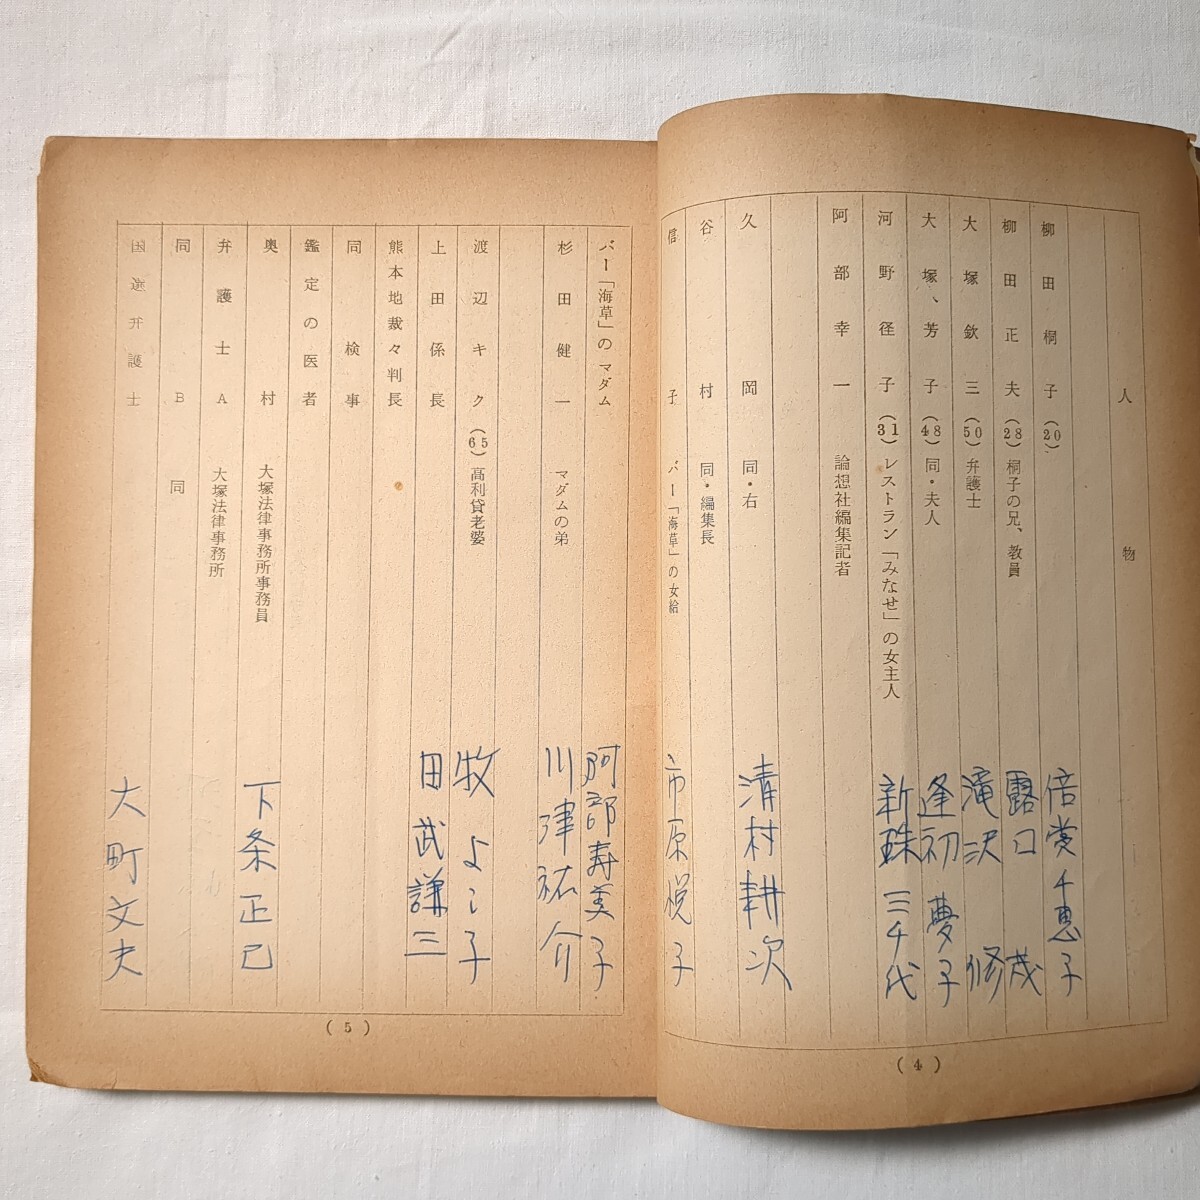 人物
柳田桐子(20) 倍賞千恵子
柳田正夫(28)桐子の兄、教員 露口茂
大塚欽三(50)弁護士 滝沢修
大塚、芳子(48)同・夫人 逢初夢子
河野径子(31)レストラン「みなせ」の女主人 新珠三千代
阿部幸一 論想社編集記者
久岡 同・右 清村耕次
谷村 同・編集長
信子 バー「海草」の女給 市原悦子
(4)
バー「海草」のマダム 阿部寿美子
杉田健一 マダムの弟 川津祐介
渡辺キク(65)高利貸老婆 牧よし子
上田係長 田武謙三
熊本地裁々判長
同検事
鑑定の医者
奥村 大塚法律事務所事務員 下条正巳
弁護士A 大塚法律事務所
同B 同
国選弁護士 大町文夫
(5)